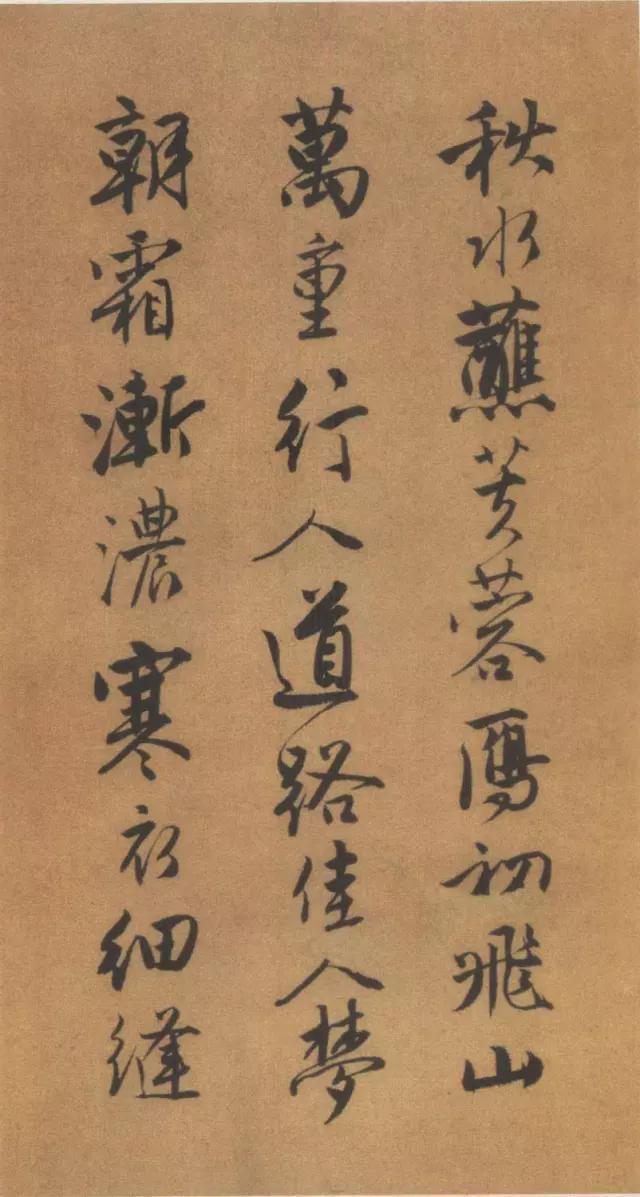 秋水蘸芙蓉雁初飛山
萬重行人道路佳人夢
朝霜漸濃寒衣細縫